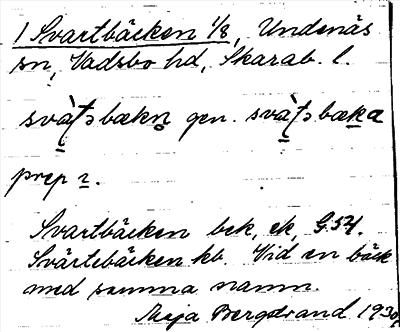 1 Svartbäcken 1/8, Undenäs
sn, Vadsbo hd, Skarab. l.
gen.
prep i.
Svartbäcken bek, ek, G:54.
Svärtebäcken kb. Vid en bäck
med samma namn.
Maja Bergstrand 1930